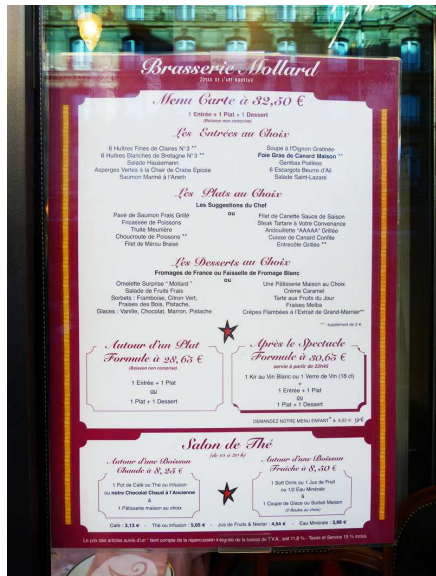 Brasserie Mollard
JOYAU DE L'ART NOUVEAU
Menu Carte à 32,50 €
1 Entrée + 1 Plat + 1 Dessert
(Boisson non comprise)
Les Entrées au Choix
6 Huîtres Fines de Claires N°3 **
6 Huîtres Blanches de Bretagne N°3 **
Salade Haussmann
Asperges Vertes à la Chair de Crabe Épicée
Saumon Mariné à l'Aneth
Soupe à l'Oignon Gratinée
Foie Gras de Canard Maison **
Gambas Poêlées
6 Escargots Beurre d'Ail
Salade Saint-Lazare
Les Plats au Choix
Les Suggestions du Chef
ou
Pavé de Saumon Frais Grillé
Fricassée de Poissons
Truite Meunière
Choucroute de Poissons **
Filet de Mérou Braisé
Filet de Canette Sauce de Saison
Steak Tartare à Votre Convenance
Andouillette "AAAAA" Grillée
Cuisse de Canard Confite
Entrecôte Grillée **
Les Desserts au Choix
Fromages de France ou Faisselle de Fromage Blanc
ou
Omelette Surprise " Mollard "
Salade de Fruits Frais
Sorbets : Framboise, Citron Vert,
Fraises des Bois, Pistache,
Glaces : Vanille, Chocolat, Marron, Pistache
Une Pâtisserie Maison au Choix
Crème Caramel
Tarte aux Fruits du Jour
Fraises Melba
Crêpes Flambées à l'Extrait de Grand-Marnier**
** : supplément de 5 €
Autour d'un Plat
Formule à 28,65 €
(Boisson non comprise)
1 Entrée + 1 Plat
ou
1 Plat + 1 Dessert
Après le Spectacle
Formule à 30,65 €
servie à partir de 22h00
1 Kir au Vin Blanc ou 1 Verre de Vin (18 cl)
+
1 Entrée + 1 Plat
ou
1 Plat + 1 Dessert
DEMANDEZ NOTRE MENU ENFANT* à
Salon de Thé
(de 15 à 20 h)
Autour d'une Boisson
Chaude à 8,25 €
1 Pot de Café ou Thé ou Infusion
ou notre Chocolat Chaud à l'Ancienne
&
1 Pâtisserie maison au choix
Autour d'une Boisson
Fraîche à 8,50 €
1 Soft Drink ou 1 Jus de Fruit
ou 1/2 Eau Minérale
&
1 Coupe de Glace ou Sorbet Maison
(2 Boules au choix)
Café : 3,13 € - Thé ou Infusion : 5,05 € - Jus de Fruits & Nectar : 4,54 € - Eau Minérale : 3,88 €
Le prix des articles suivis d'un * tient compte de la répercussion intégrale de la baisse de T.V.A., soit 11,8 % - Taxes et Service 15 % inclus